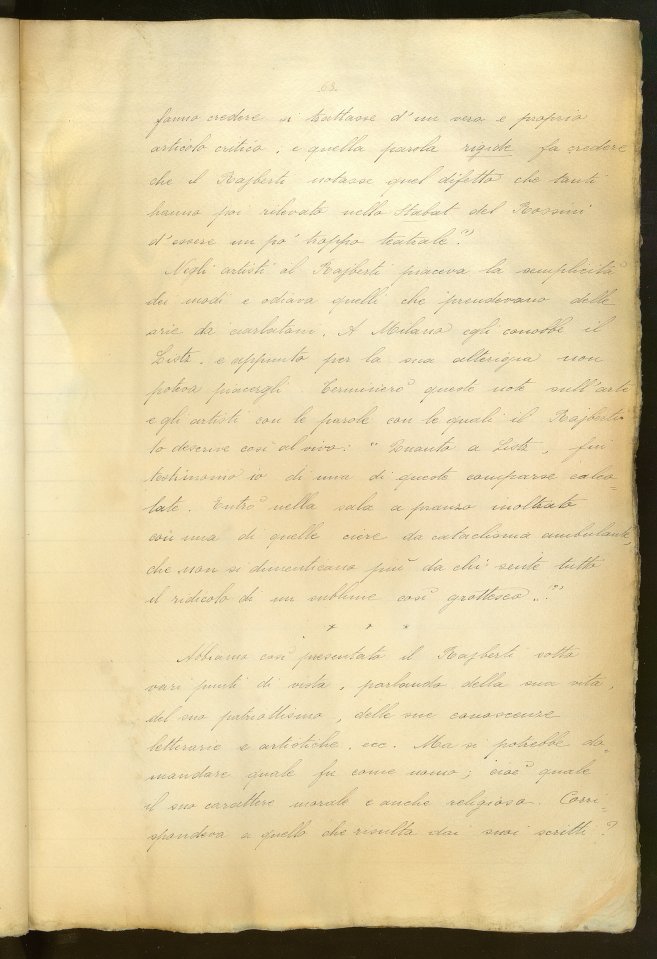 63.
fanno credere si trattasse d'un vero e proprio
articolo critico; e quella parola rigide fa credere
che il Rajberti notasse quel difetto che tanti
hanno poi rilevato nello Stabat del Rossini
d'essere un po' troppo teatrale.
Negli artisti al Rajberti piaceva la semplicità
dei modi e odiava quelli che prendevano delle
arie da ciarlatani. A Milano egli conobbe il
Listz, e appunto per la sua alterigia non
poteva piacergli. Terminerò queste note sull'arte
e gli artisti con le parole con le quali il Rajberti
lo descrive così al vivo: "Quanto a Listz, fui
testimonio io di una di queste comparse calco-
late. Entrò nella sala a pranzo inoltrato
con una di quelle ciere da cataclisma ambulante,
che non si dimenticano più da chi sente tutto
il ridicolo di un sublime così grottesco..."
* * *
Abbiamo così presentato il Rajberti sotto
vari punti di vista, parlando della sua vita,
del suo patriottismo, delle sue conoscenze
letterarie e artistiche, ecc. Ma si potrebbe do-
mandare quale fu come uomo; cioè quale
il suo carattere morale e anche religioso. Corri-
spondeva a quello che risulta dai suoi scritti?